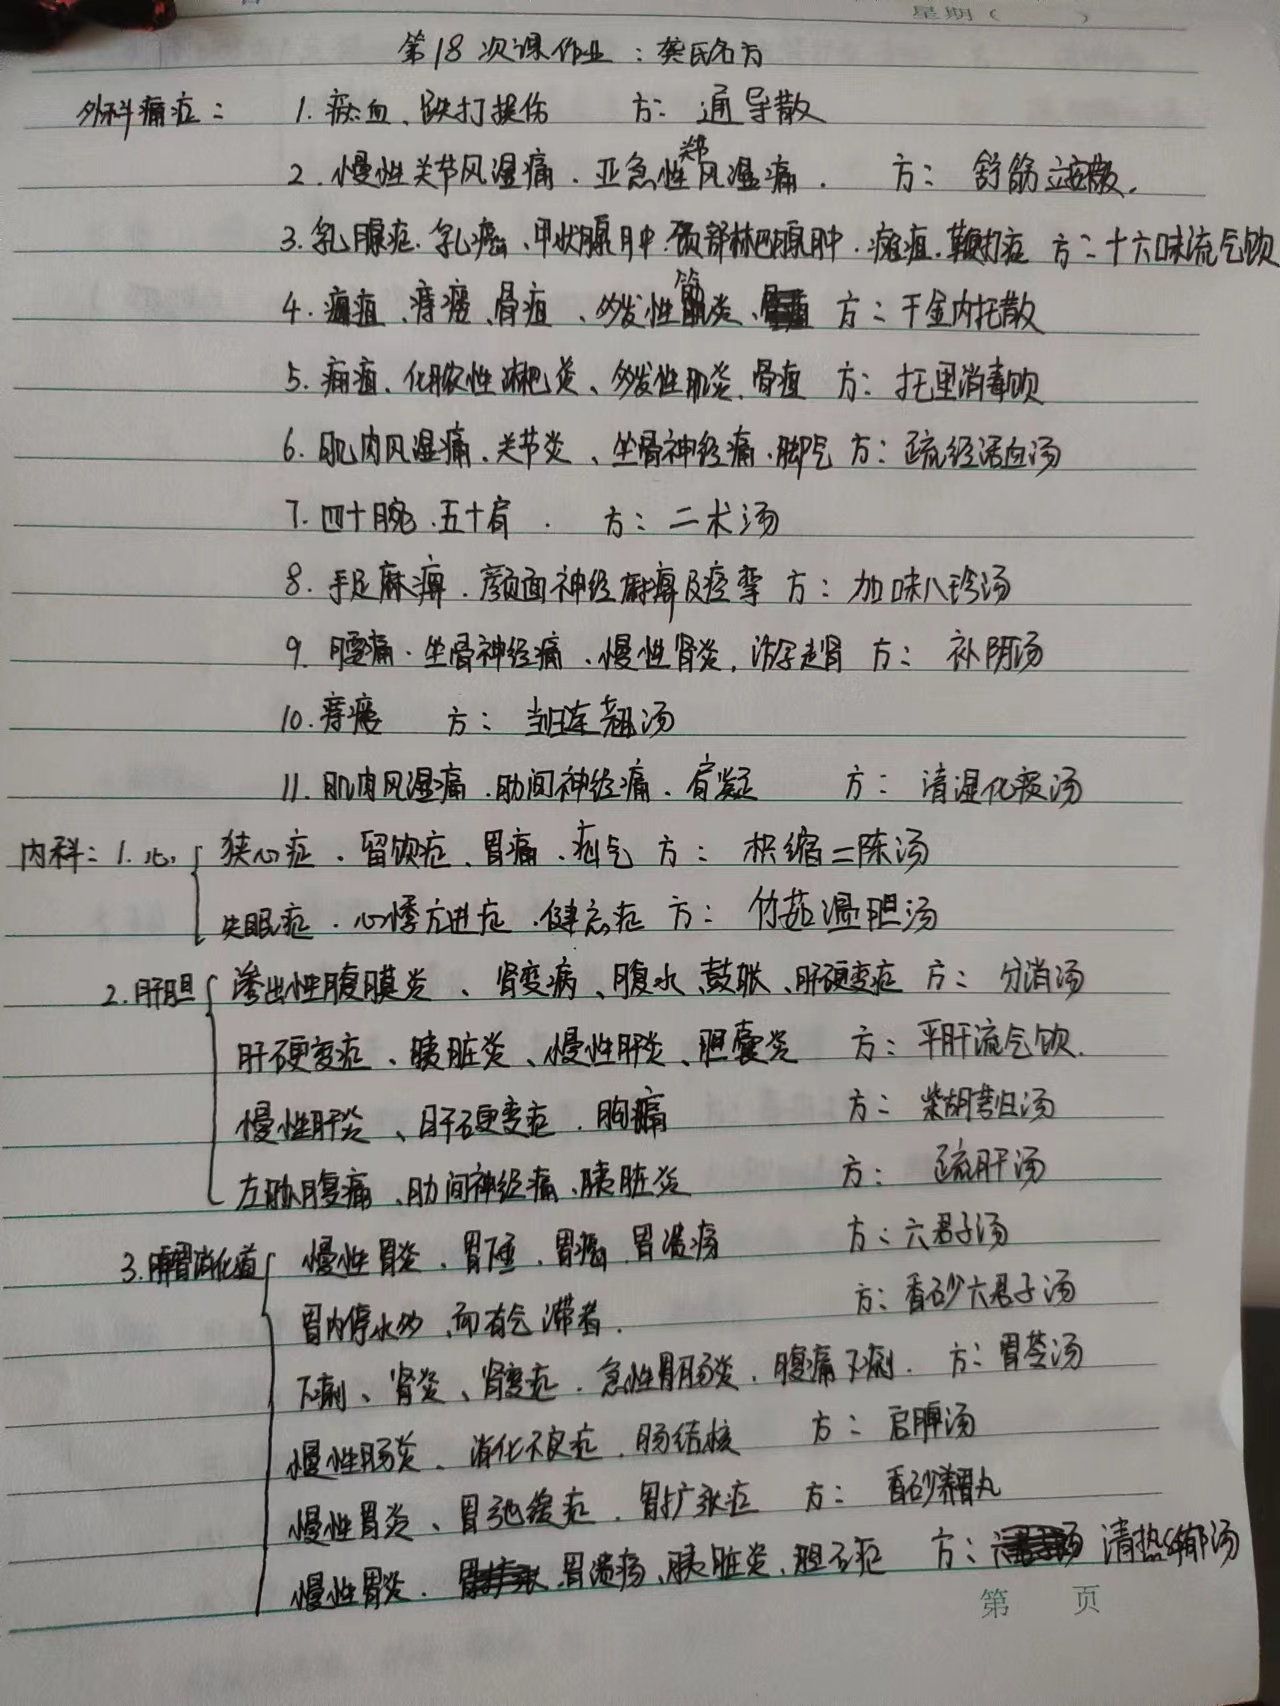 星期（ ）
第18次课作业：龚氏名方
外科痛症：1. 瘀血、跌打损伤 方：通导散
2. 慢性关节风湿痛．亚急性郑风湿痛． 方：舒筋立安散．
3. 乳腺症．乳癌、甲状腺肿．颈部淋巴腺肿． 方：十六味流气饮
4. 痈疽、痔瘘、骨疽、多发性筋炎、 方：千金内托散
5. 痈疽、化脓性淋巴炎、多发性肌炎、骨疽 方：托里消毒饮
6. 肌肉风湿痛．关节炎、坐骨神经痛．脚气 方：疏经活血汤
7. 四十腕．五十肩． 方：二术汤
8. 手足麻痹．颜面神经麻痹及痉挛 方：加味八珍汤
9. 腰痛．坐骨神经痛．慢性肾炎，游走肾 方：补阴汤
10. 痔瘘 方：当归连翘汤
11. 肌肉风湿痛．肋间神经痛．肩凝 方：清湿化痰汤
内科：1. 心 狭心症．留饮症、胃痛．疝气 方：枳缩二陈汤
失眠症．心悸亢进症．健忘症 方：竹茹温胆汤
2. 肝胆 渗出性腹膜炎、肾变病、腹水、鼓胀、肝硬变症 方：分消汤
肝硬变症、胰脏炎、慢性肝炎、胆囊炎 方：平肝流气饮．
慢性肝炎、肝硬变症．胸痛 方：柴胡芎归汤
左胁腹痛、肋间神经痛、胰脏炎 方：疏肝汤
3. 脾胃消化道 慢性胃炎．胃下垂．胃癌．胃溃疡 方：六君子汤
胃内停水多、而有气滞者． 方：香砂六君子汤
下痢、肾炎、肾变症．急性胃肠炎．腹痛下痢． 方：胃苓汤
慢性肠炎、消化不良症．肠结核 方：启脾汤
慢性胃炎、胃弛缓症．胃扩张症 方：香砂养胃丸
慢性胃炎．胃溃疡、胰脏炎、胆石症 方：清热解郁汤
第 页